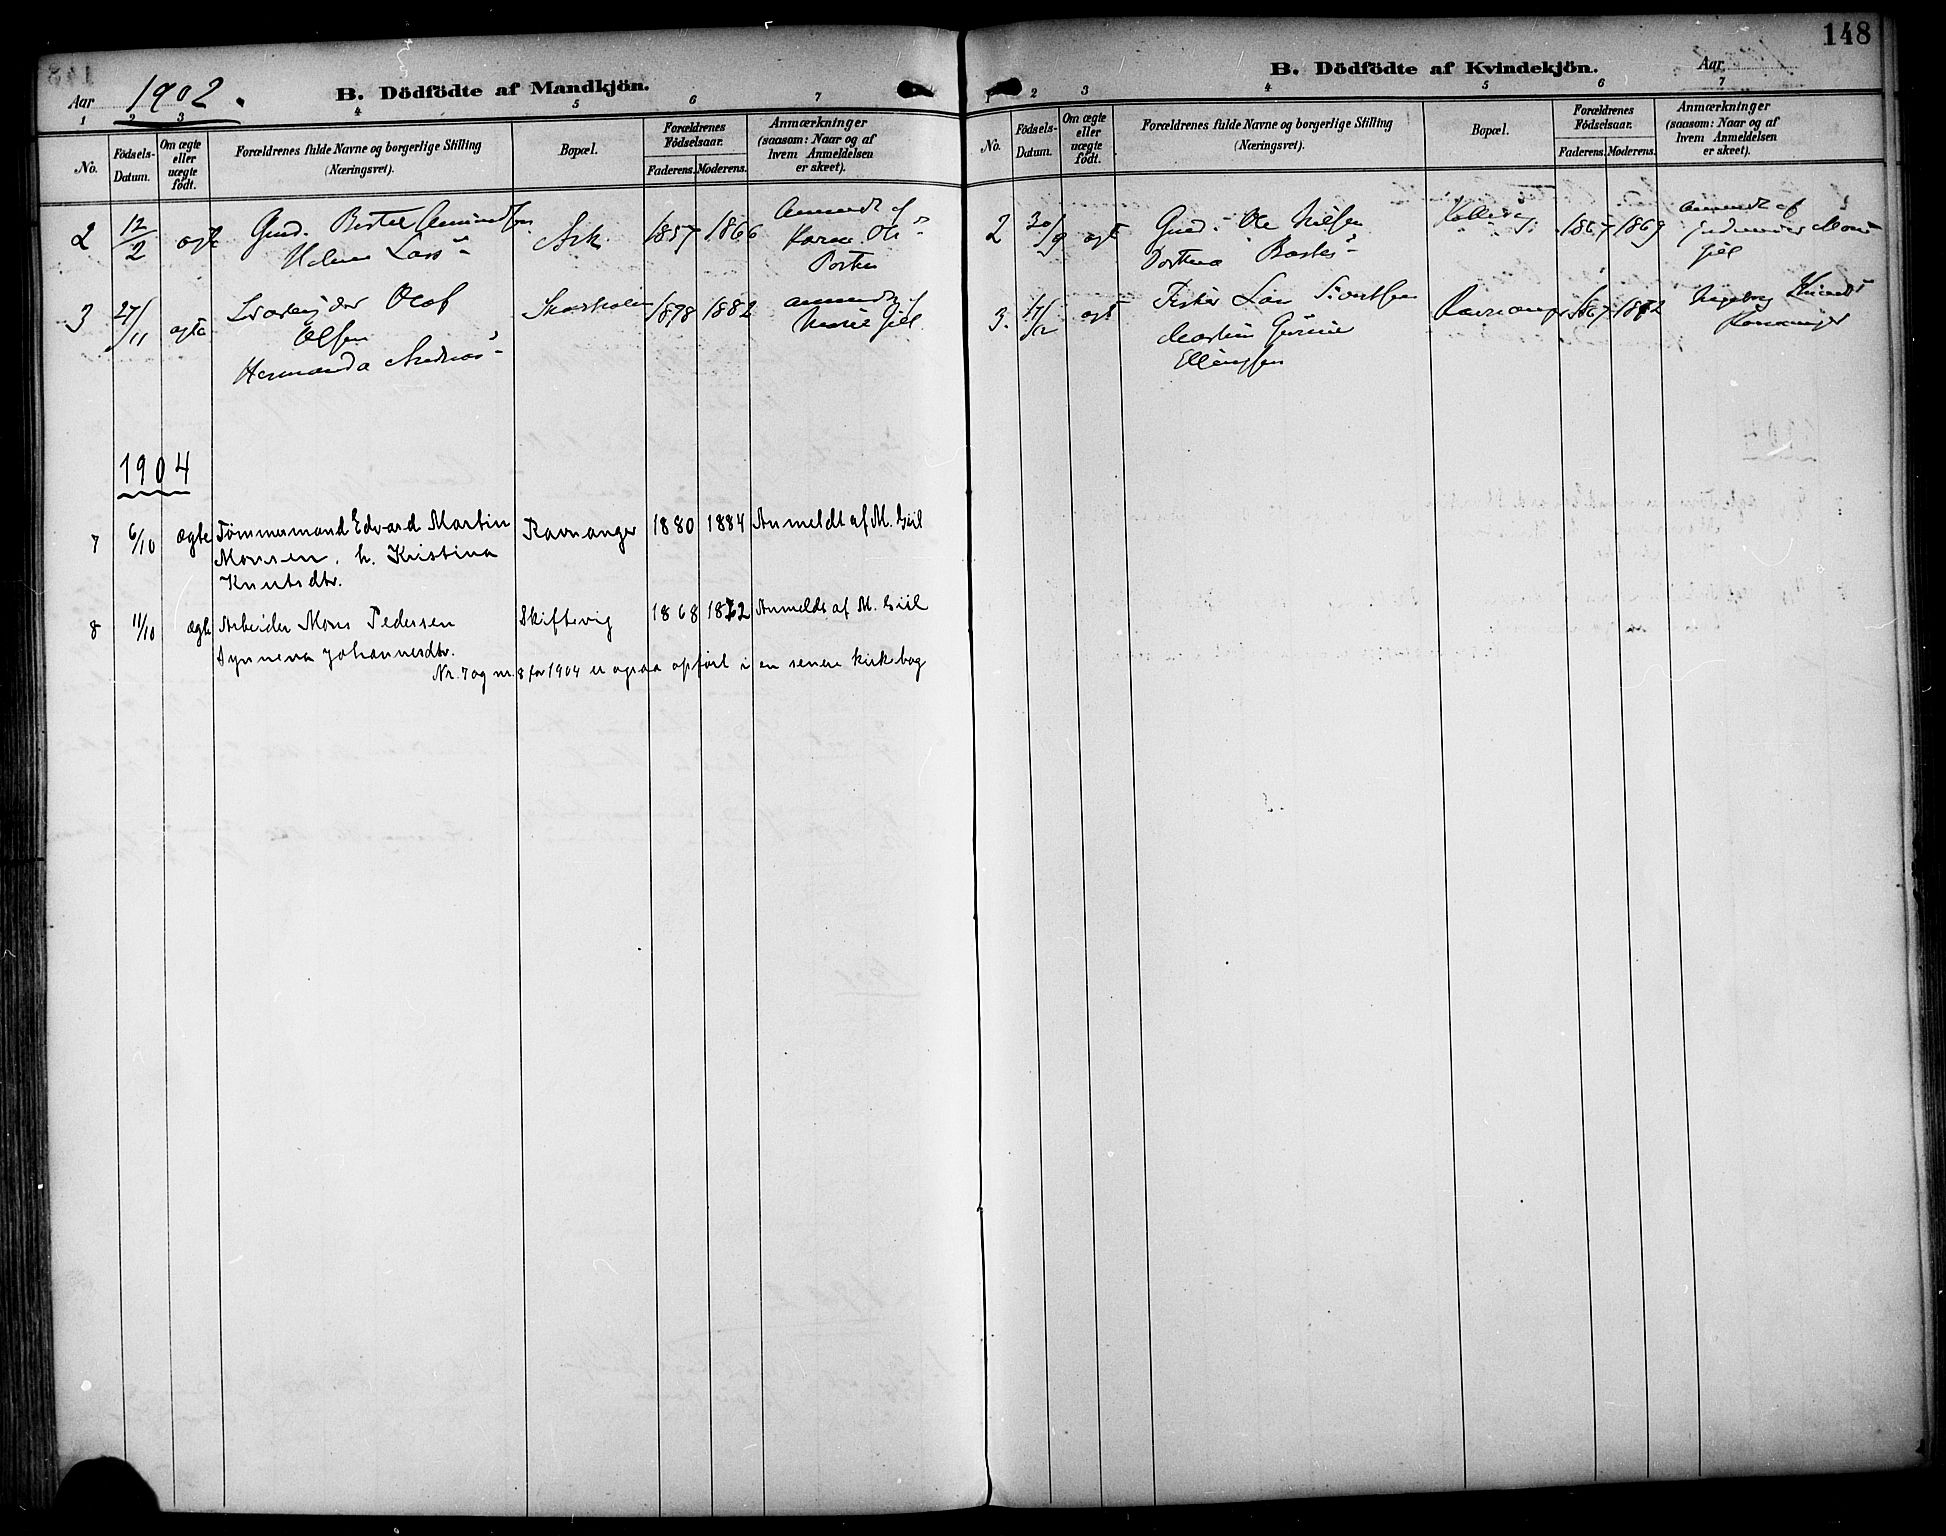 148
Aar 1902.
B. Dödfödte af Mandkjön.
1 2 3 4 5 6 7
No.
Födsels-
Datum.
Om ægte
eller
uægte
födt.
Forældrenes fulde Navne og borgerlige Stilling
(Næringsvei).
Bopæl.
Forældrenes
Födselsaar.
Faderens. Moderens.
Anmærkninger
(saasom: Naar og af
hvem Anmeldelsen
er skeet).
2 12/2 ægte Gmd. Bertel Amundsen Ask 1857 1866 Anmeldt af
Helene Lars
Karen Ols
3 27/11 ægte Olaf 1898 1882 anmeldt af
Olsen
Marie Giil
Hermanda Andreas
1904
7 6/10 ægte Tømmermand Edvard Martin Ravnanger 1880 1884 Anmeldt af M. Giil
Monsen, h. Kristina
Knutsdtr.
8 11/10 ægte Arbeider Mons Pedersen Skiftesvig 1868 1872 Anmeldt af M. Giil
Synneva Johannesdtr.
Nr. 7 og nr. 8 for 1904 er ogsaa opført i en senere kirkebog
B. Dödfödte af Kvindekjön.
Aar
1 2 3 4 5 6 7
No.
Födsels-
Datum.
Om ægte
eller
uægte
födt.
Forældrenes fulde Navne og borgerlige Stilling
(Næringsvei).
Bopæl.
Forældrenes
Födselsaar.
Faderens. Moderens.
Anmærkninger
(saasom: Naar og af
hvem Anmeldelsen
er skeet).
2 30/9 ægt Gmd. Ole Nilsen 1867 1869 anmeldt af
Giil
3. ægt Fisker Ravnanger 1867 1872 Ingeborg
Ellingsen